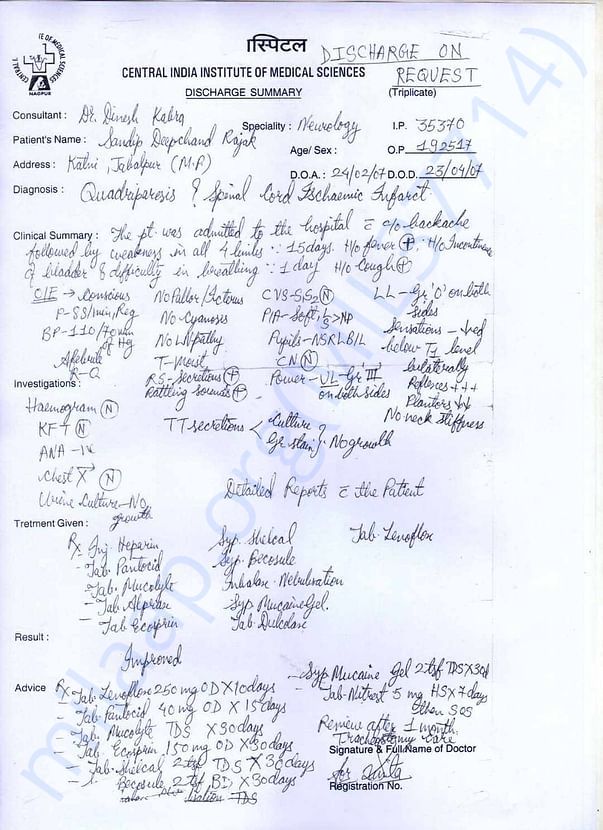 स्पिटल
DISCHARGE ON
REQUEST
CENTRAL INDIA INSTITUTE OF MEDICAL SCIENCES
NAGPUR
DISCHARGE SUMMARY
(Triplicate)
Consultant : Dr. Dinesh Kabra
Speciality : Neurology
I.P. 35370
Patient's Name : Sandip Deepchand Rajak
Age/ Sex :
O.P. 192517
Address : Katni, Jabalpur (M.P)
D.O.A. : 24/02/07 D.O.D. 23/04/07
Diagnosis : Quadriparesis ? Spinal Cord Ischaemic Infarct
Clinical Summary : The pt. was admitted to the hospital c̄ c/o backache
followed by weakness in all 4 limbs ∵ 15days. H/o fever (+), H/o Incontinence
of bladder & difficulty in breathing ∵ 1 day H/o Cough (+)
O/E → Conscious No Pallor/Icterus CVS-S1S2 (N) LL - Gr 'O' on both
sides
P-88/min, Reg No Cyanosis P/A-Soft,
Sensations - ↓ed
BP-110/70 mm of Hg No LN pathy Pupils-NSRLB/L below T1 level
bilaterally
Afebrile T-Moist CN (N)
RS-Secretions (+) Power - UL-Gr III on both sides Reflexes +++
Rattling sounds (+) Plantors ↓↓
No neck stiffness
Investigations :
Haemogram (N)
KFT (N)
TT secretions < Culture
Gr stain } No growth
ANA -
Chest X (N)
Urine Culture - No growth
Detailed Reports c̄ the Patient
Tretment Given :
Rx Inj Heparin Syp. Shelcal Tab. Lenoflox
- Tab. Pantocid Syp. Becosule
- Tab. Mucolyte Nebulisation
- Tab. Alprax Syp Mucaine Gel.
- Tab. Ecosprin Tab. Dulcolax
Result :
Improved
Advice Rx - Tab. Lenoflox 250 mg OD X 10 days
- Tab. Pantocid 40 mg OD X 15 days
- Tab. Mucolyte TDS X 30 days
- Tab. Ecosprin 150 mg OD X 30 days
- Tab. Shelcal 2 tsf TDS X 30 days
- Becosule 2 tsf BD X 30 days
TDS
- Syp Mucaine Gel 2 tsf TDS X 30d
- Tab. Nitrest 5 mg HS X 7 days
then SOS
Review after 1 month.
Tracheostomy care
Signature & Full Name of Doctor
for
Registration No.
milaap.org